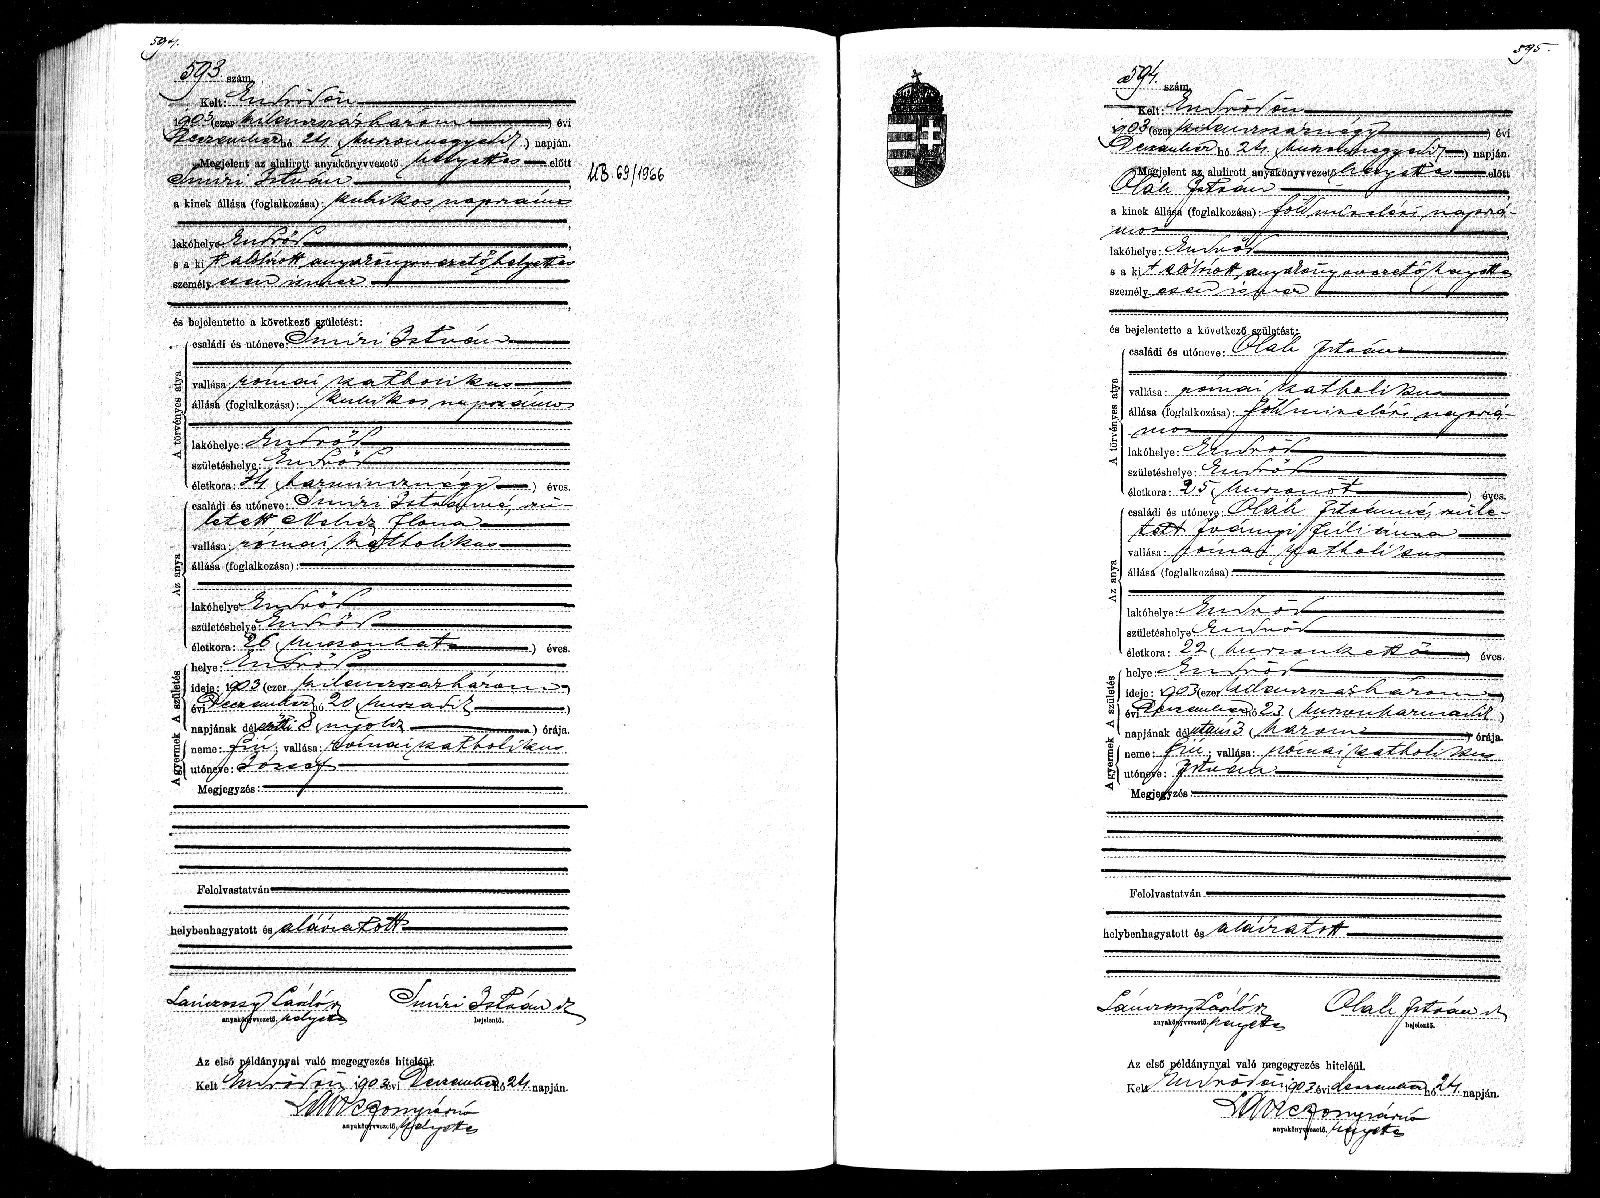 594.
593 szám
Kelt: Endrődön
1903 (ezer kilenczszázhárom) évi
Deczember hó 24 (huszonnegyedik) napján.
Megjelent az alulirott anyakönyvvezető helyettes előtt
Smiri István
a kinek állása (foglalkozása): kubikos napszámos
lakóhelye Endrőd
s a ki t alólirott anyakönyvvezető helyettes
személyesen ismer
és bejelentette a következő születést:
A törvényes atya
családi és utóneve: Smiri István
vallása római katholikus
állása (foglalkozása): kubikos napszámos
lakóhelye: Endrőd
születéshelye: Endrőd
életkora: 34 (harmincznégy) éves.
Az anya
családi és utóneve: Smiri Istvánné, szü-
letett Ilona
vallása: római katholikus
állása (foglalkozása):
lakóhelye: Endrőd
születéshelye Endrőd
életkora: 26 (huszonhat) éves.
A gyermek A születés
helye: Endrőd
ideje: 1903 (ezer kilenczszázhárom)
évi Deczember hó 20 (huszadik)
napjának délelőtti 8 (nyolcz) órája.
neme: fiú; vallása: római katholikus
utóneve: József
Megjegyzés:
Felolvastatván
helybenhagyatott és aláíratott
László helyettes
anyakönyvvezető,
Smiri István
bejelentő.
Az első példánynyal való megegyezés hiteléül.
Kelt Endrődön 1903 évi Deczember hó 24 napján.
anyakönyvvezető, helyettes
UB. 69/1966
595.
594. szám
Kelt: Endrődön
1903 (ezer kilenczszáznégy) évi
Deczember hó 24 (huszonnegyedik) napján.
Megjelent az alulirott anyakönyvvezető helyettes előtt
Oláh István
a kinek állása (foglalkozása): földmivelési napszá-
mos
lakóhelye: Endrőd
s a ki t alólirott anyakönyvvezető helyettes
személyesen ismer
és bejelentette a következő születést:
A törvényes atya
családi és utóneve: Oláh István
vallása: római katholikus
állása (foglalkozása): földmivelési napszá-
mos
lakóhelye: Endrőd
születéshelye: Endrőd
életkora: 25 (huszonöt) éves.
Az anya
családi és utóneve: Oláh Istvánné, szüle-
tett Iványi Juliánna
vallása: római katholikus
állása (foglalkozása)
lakóhelye: Endrőd
születéshelye Endrőd
életkora: 22 (huszonkettő) éves.
A gyermek A születés
helye Endrőd
ideje: 1903 (ezer kilenczszázhárom)
évi Deczember hó 23 (huszonharmadik)
napjának délután 3 (három) órája.
neme: fiu; vallása: római katholikus
utóneve: István
Megjegyzés:
Felolvastatván
helybenhagyatott és aláíratott
László helyettes
anyakönyvvezető,
Oláh István
bejelentő.
Az első példánynyal való megegyezés hiteléül.
Kelt Endrődön 1903 évi deczember hó 24 napján.
anyakönyvvezető, helyettes